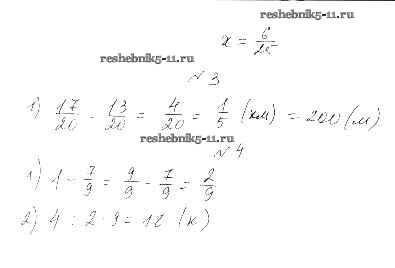 reshebnik5-11.ru
x = 6/25
reshebnik5-11.ru
№ 3
1) 17/20 - 13/20 = 4/20 = 1/5 (км) = 200 (м)
reshebnik5-11.ru
№ 4
1) 1 - 7/9 = 9/9 - 7/9 = 2/9
2) 4 : 2 · 9 = 18 (к)